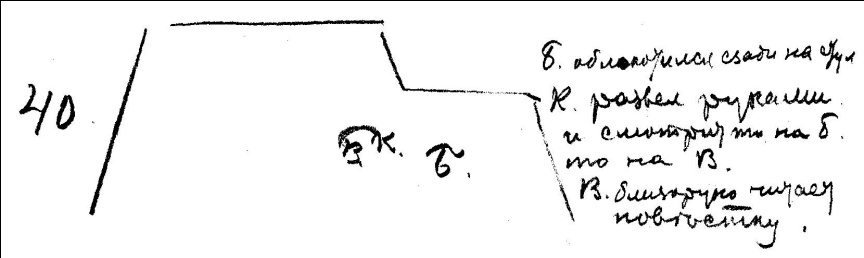 40
В К. Б.
Б. облокотился сзади на стул
К. развел руками
и смотрит то на Б.
то на В.
В. близоруко читает
повестку.